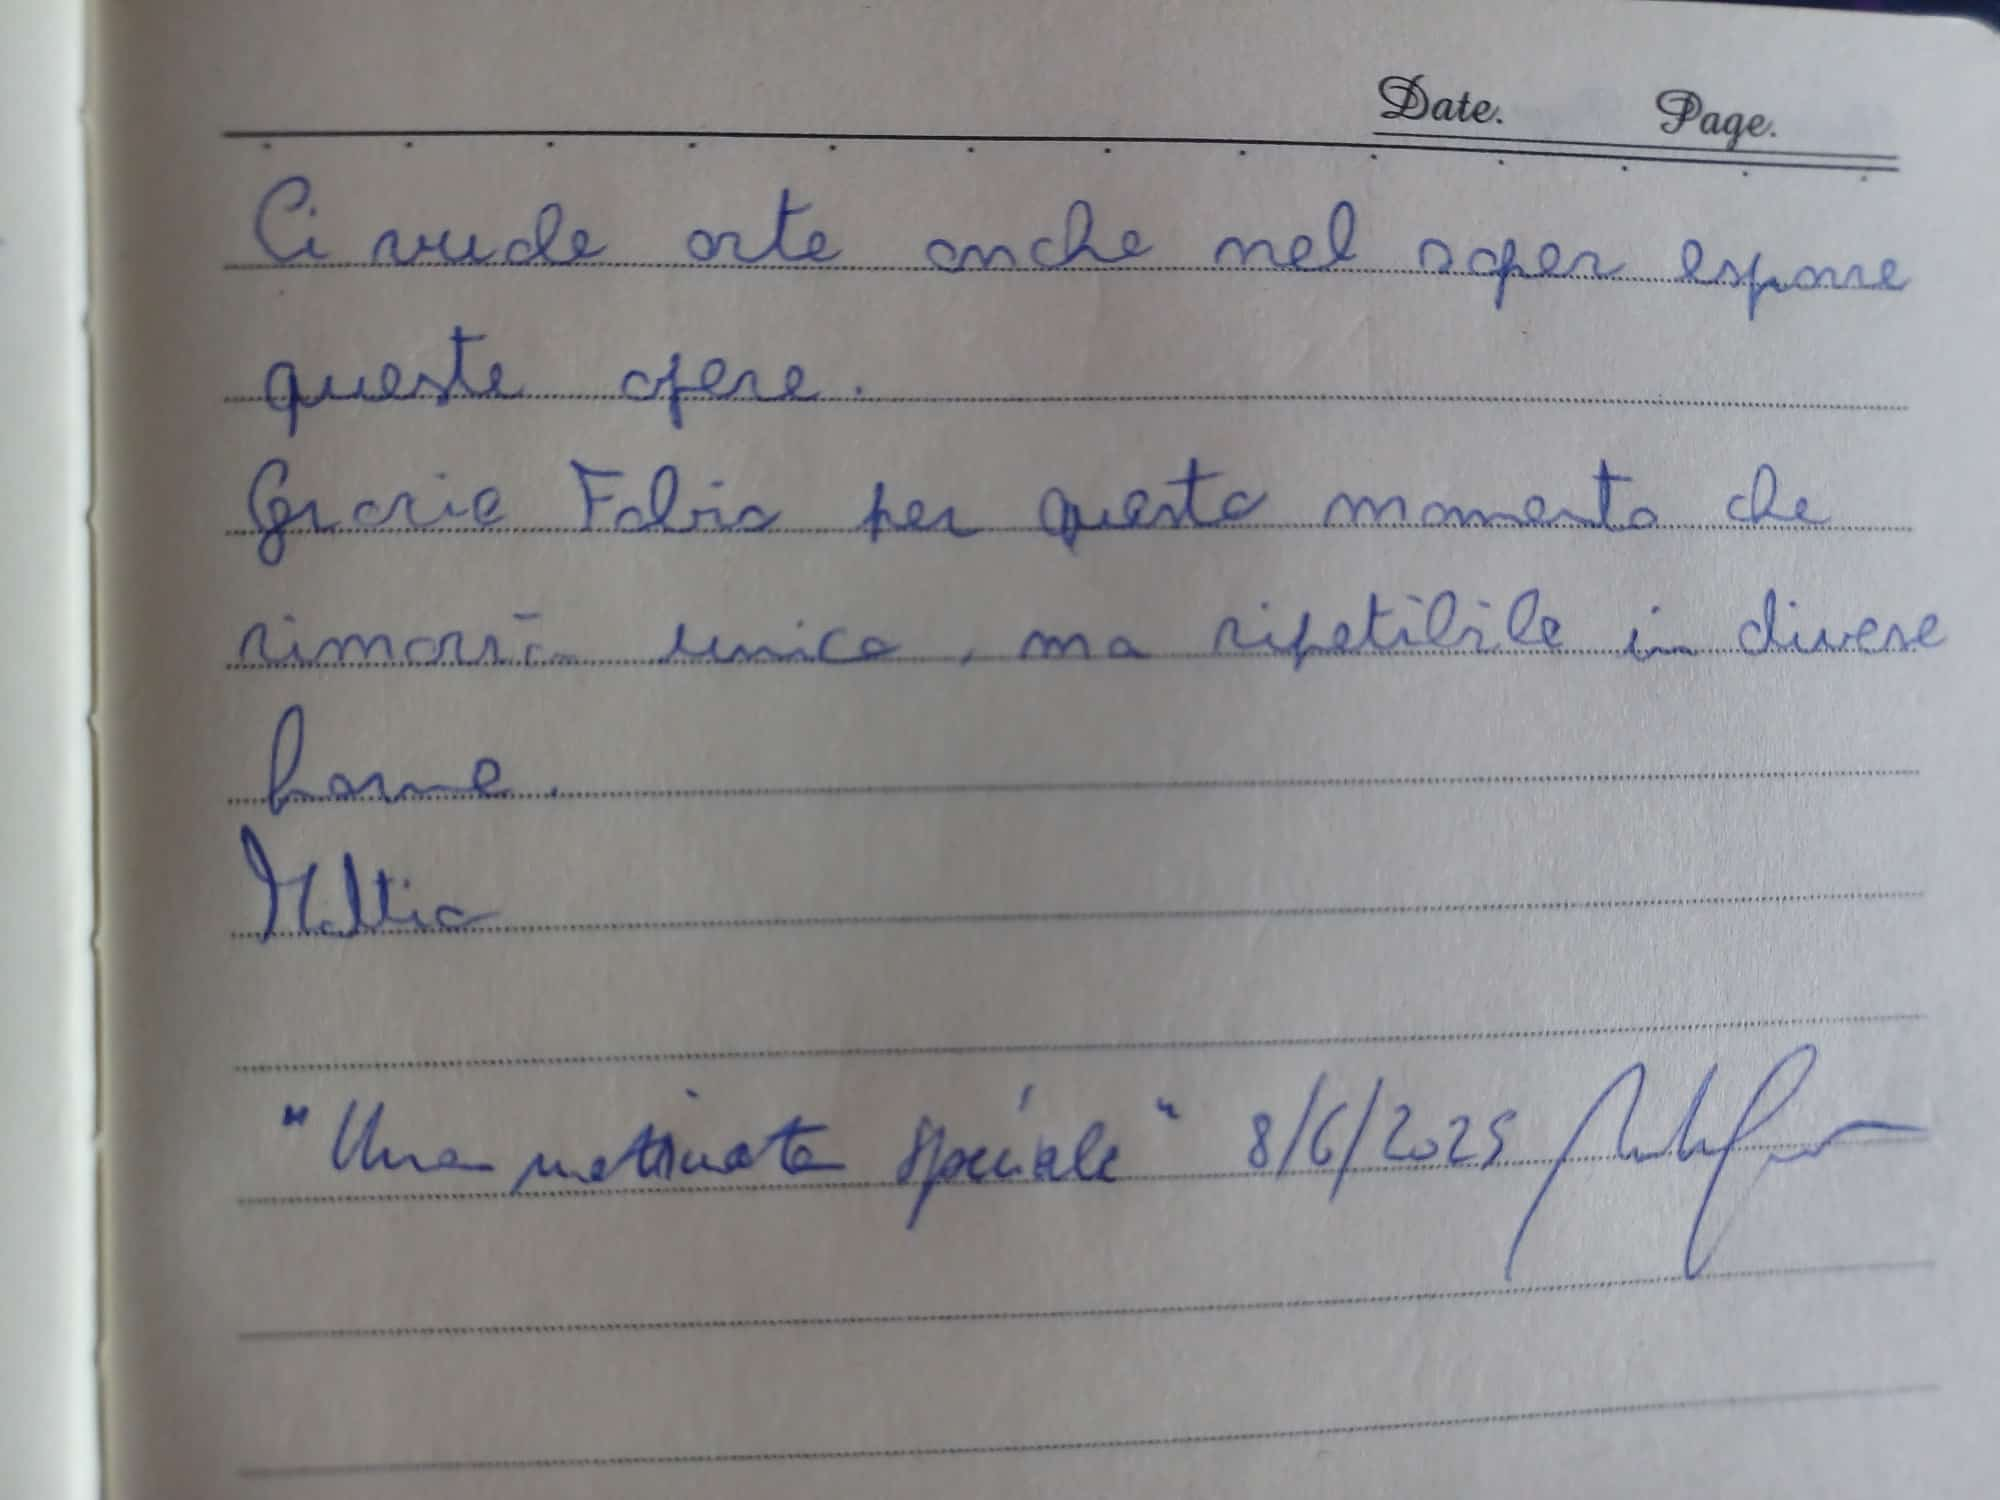 Date. Page.
Ci vuole arte anche nel saper esporre
queste opere.
Grazie Fabio per questo momento che
rimarrà unico, ma ripetibile in diverse
forme.
Mattia
"Una mattinata speciale" 8/6/2025